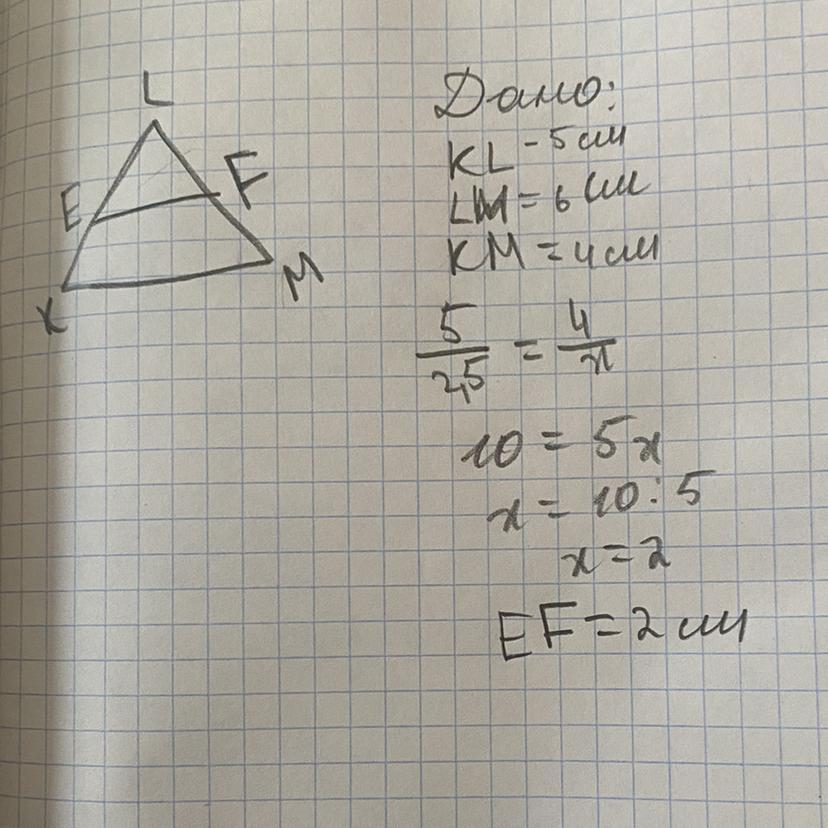 L
E F
K M
Дано:
KL - 5 см
LM = 6 см
KM = 4 см
5/2,5 = 4/x
10 = 5x
x = 10 : 5
x = 2
EF = 2 см